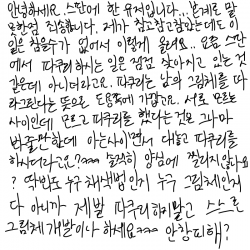 안녕하세요. 스판에 한 유저입니다...본계로 말
못한점 죄송합니다. 제가 참고참고참았는데도 더
이상 참을수가 없어서 이렇게 올려요.. 요즘 스판
에서 따쿠리하시는 일은 점점 잦아지고 있는 것
같은데 아니더라고요. 따쿠리는 남의 그림체를 따
라그린다는 뜻으로 도용쪽에 가깝고요. 서로 모르는
사이인데 모르고 따쿠리를 했다는건은 그나마
반플반한데 아는사이면서 대놓고 따쿠리를
하시더라고요?ㅋㅋㅋ 솔직히 양심에 찔리지 않나요
? 딱봐도 누구 채색법인지 누구 그림체인지
다 아니까 제발 따쿠리하지말고 스스로
그림체 개발이나 하세요ㅋㅋㅋ 안창피해?